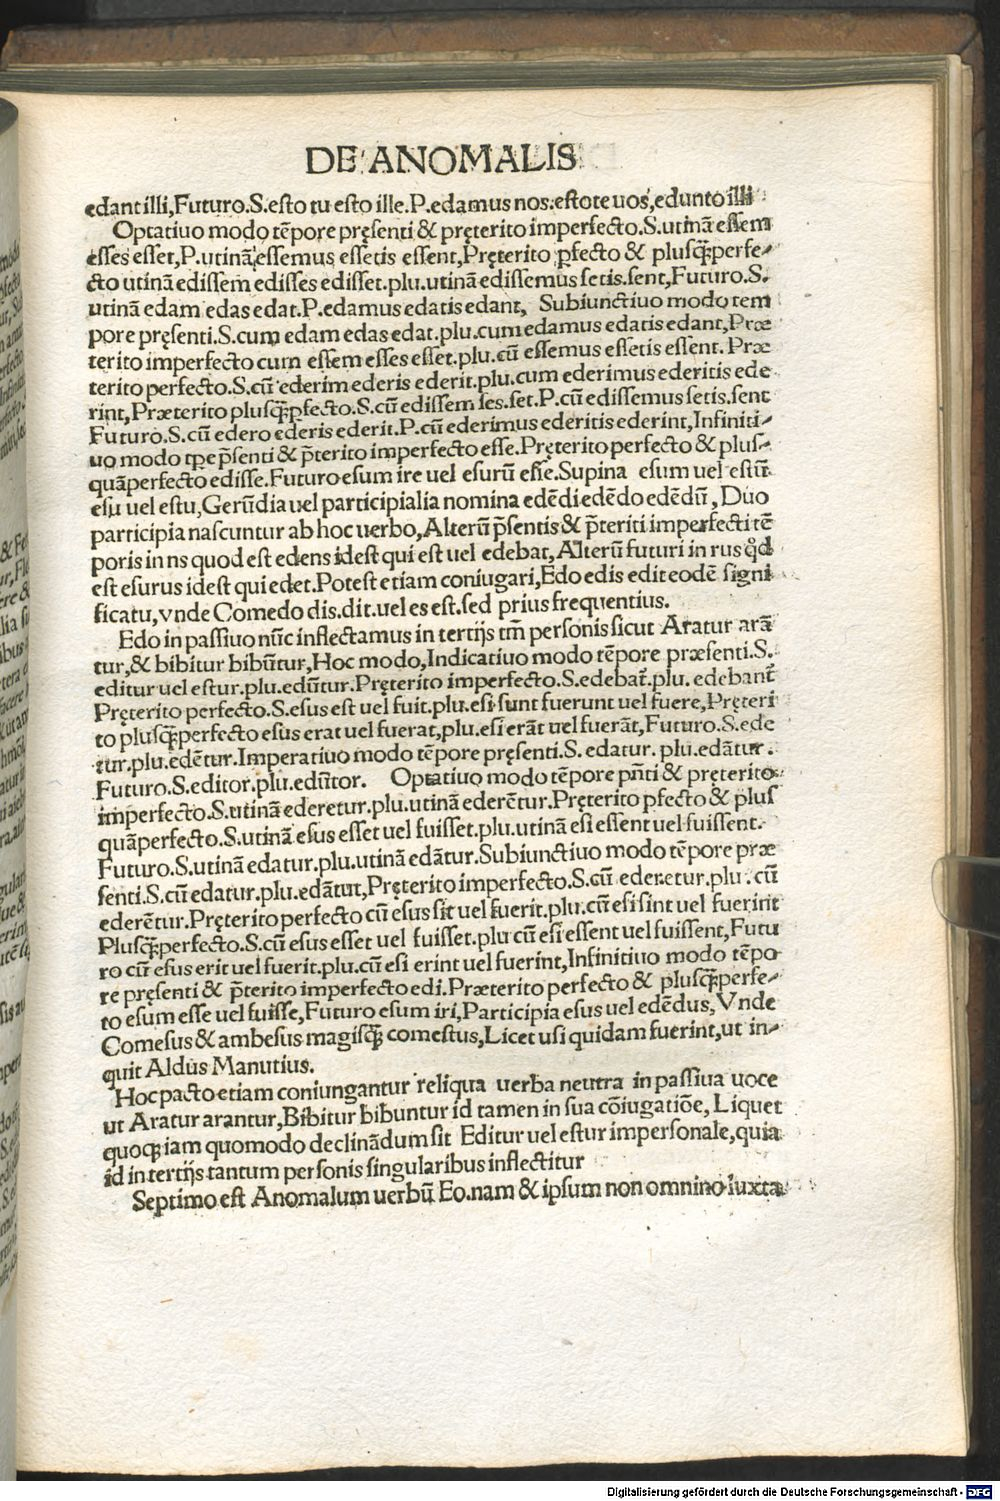 DE ANOMALIS
edant illi,Futuro.S.esto tu esto ille.P.edamus nos:estote uos,edunto illi
Optatiuo modo tẽpore pręsenti & pręterito imperfecto.S.utinã essem
esses esset,P.utinã essemus essetis essent,Pręterito ꝑfecto & plusq̃ꝑerfe-
cto utinã edissem edisses edisset.plu.utinã edissemus setis.sent,Futuro.S.
utinã edam edas edat.P.edamus edatis edant, Subiunctiuo modo tem
pore pręsenti.S.cum edam edas edat.plu.cum edamus edatis edant,Præ
terito imperfecto cum essem esses esset.plu.cũ essemus essetis essent. Præ
terito perfecto.S.cũ ederim ederis ederit.plu.cum ederimus ederitis ede
rint,Præterito plusq̃ꝑfecto.S.cũ edissem ses.set.P.cũ edissemus setis.sent
Futuro.S.cũ edero ederis ederit.P.cũ ederimus ederitis ederint,Infiniti-
uo modo tꝑe p̃senti & p̃terito imperfecto esse.Pręterito perfecto & plus-
quãperfecto edisse.Futuro esum ire uel esurũ esse.Supina esum uel estũ
esu uel estu,Gerũdia uel participialia nomina edẽdi edẽdo edẽdũ, Duo
participia nascuntur ab hoc uerbo,Alterũ p̃sentis & p̃teriti imperfecti tẽ
poris in ns quod est edens idest qui est uel edebat,Alterũ futuri in rus q̊d
est esurus idest qui edet.Potest etiam coniugari,Edo edis edit eodẽ signi
ficatu,vnde Comedo dis.dit.uel es est.sed prius frequentius.
Edo in passiuo nũc inflectamus in tertijs tm̃ personis sicut Aratur arã
tur,& bibitur bibũtur,Hoc modo,Indicatiuo modo tẽpore præsenti.S.
editur uel estur.plu.edũtur.Pręterito imperfecto.S.edebat᷑.plu. edebant᷑
Pręterito perfecto.S.esus est uel fuit.plu.esi sunt fuerunt uel fuere,Pręteri
to plusq̃ꝑerfecto esus erat uel fuerat,plu.esi erãt uel fuerãt,Futuro.S.ede
tur.plu.edẽtur.Imperatiuo modo tẽpore pręsenti.S. edatur. plu.edãtur.
Futuro.S.editor.plu.edũtor. Optatiuo modo tẽpore pñti & pręterito
imperfecto.S.utinã ederetur.plu.utinã ederẽtur.Pręterito ꝑfecto & plus
quãperfecto.S.utinã esus esset uel fuisset.plu.utinã esi essent uel fuissent.
Futuro.S.utinã edatur.plu.utinã edãtur.Subiunctiuo modo tẽpore præ
senti.S.cũ edatur.plu.edãtut,Pręterito imperfecto.S.cũ ederetur.plu.cũ
ederẽtur.Pręterito perfecto cũ esus sit uel fuerit.plu.cũ esi sint uel fuerint
Plusq̃perfecto.S.cũ esus esset uel fuisset.plu cũ esi essent uel fuissent,Futu
ro cũ esus erit uel fuerit.plu.cũ esi erint uel fuerint,Infinitiuo modo tẽpo-
re pręsenti & p̃terito imperfecto edi.Præterito perfecto & plusq̃perfe-
to esum esse uel fuisse,Futuro esum iri,Participia esus uel edẽdus,Vnde
Comesus & ambesus magisq̃ comestus,Licet usi quidam fuerint,ut in-
quit Aldus Manutius.
Hoc pacto etiam coniungantur reliqua uerba neutra in passiua uoce
ut Aratur arantur,Bibitur bibuntur id tamen in sua cõiugatiõe, Liquet
quoq; iam quomodo declinãdum sit Editur uel estur impersonale,quia
id in tertijs tantum personis singularibus inflectitur
Septimo est Anomalum uerbũ Eo.nam & ipsum non omnino iuxta
Digitalisierung gefördert durch die Deutsche Forschungsgemeinschaft - DFG